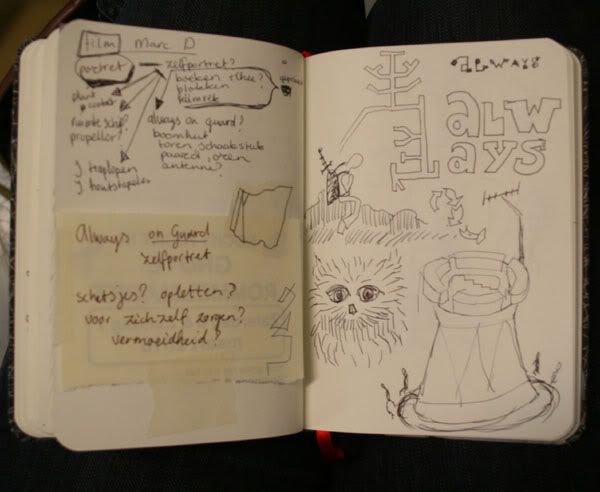 film Marc D
portret — zelfportret?
boeken thee?
plukken
klimrek
plant
ruimteschip?
propellor?
always on guard?
boomhut
toren, schaakstuk
paard, oren
antenne?
J. traplopen
J. houtstapelen
Always on Guard
zelfportret
schetsjes? opletten?
voor zichzelf zorgen?
vermoeidheid?
ALWAYS
ALW
AYS